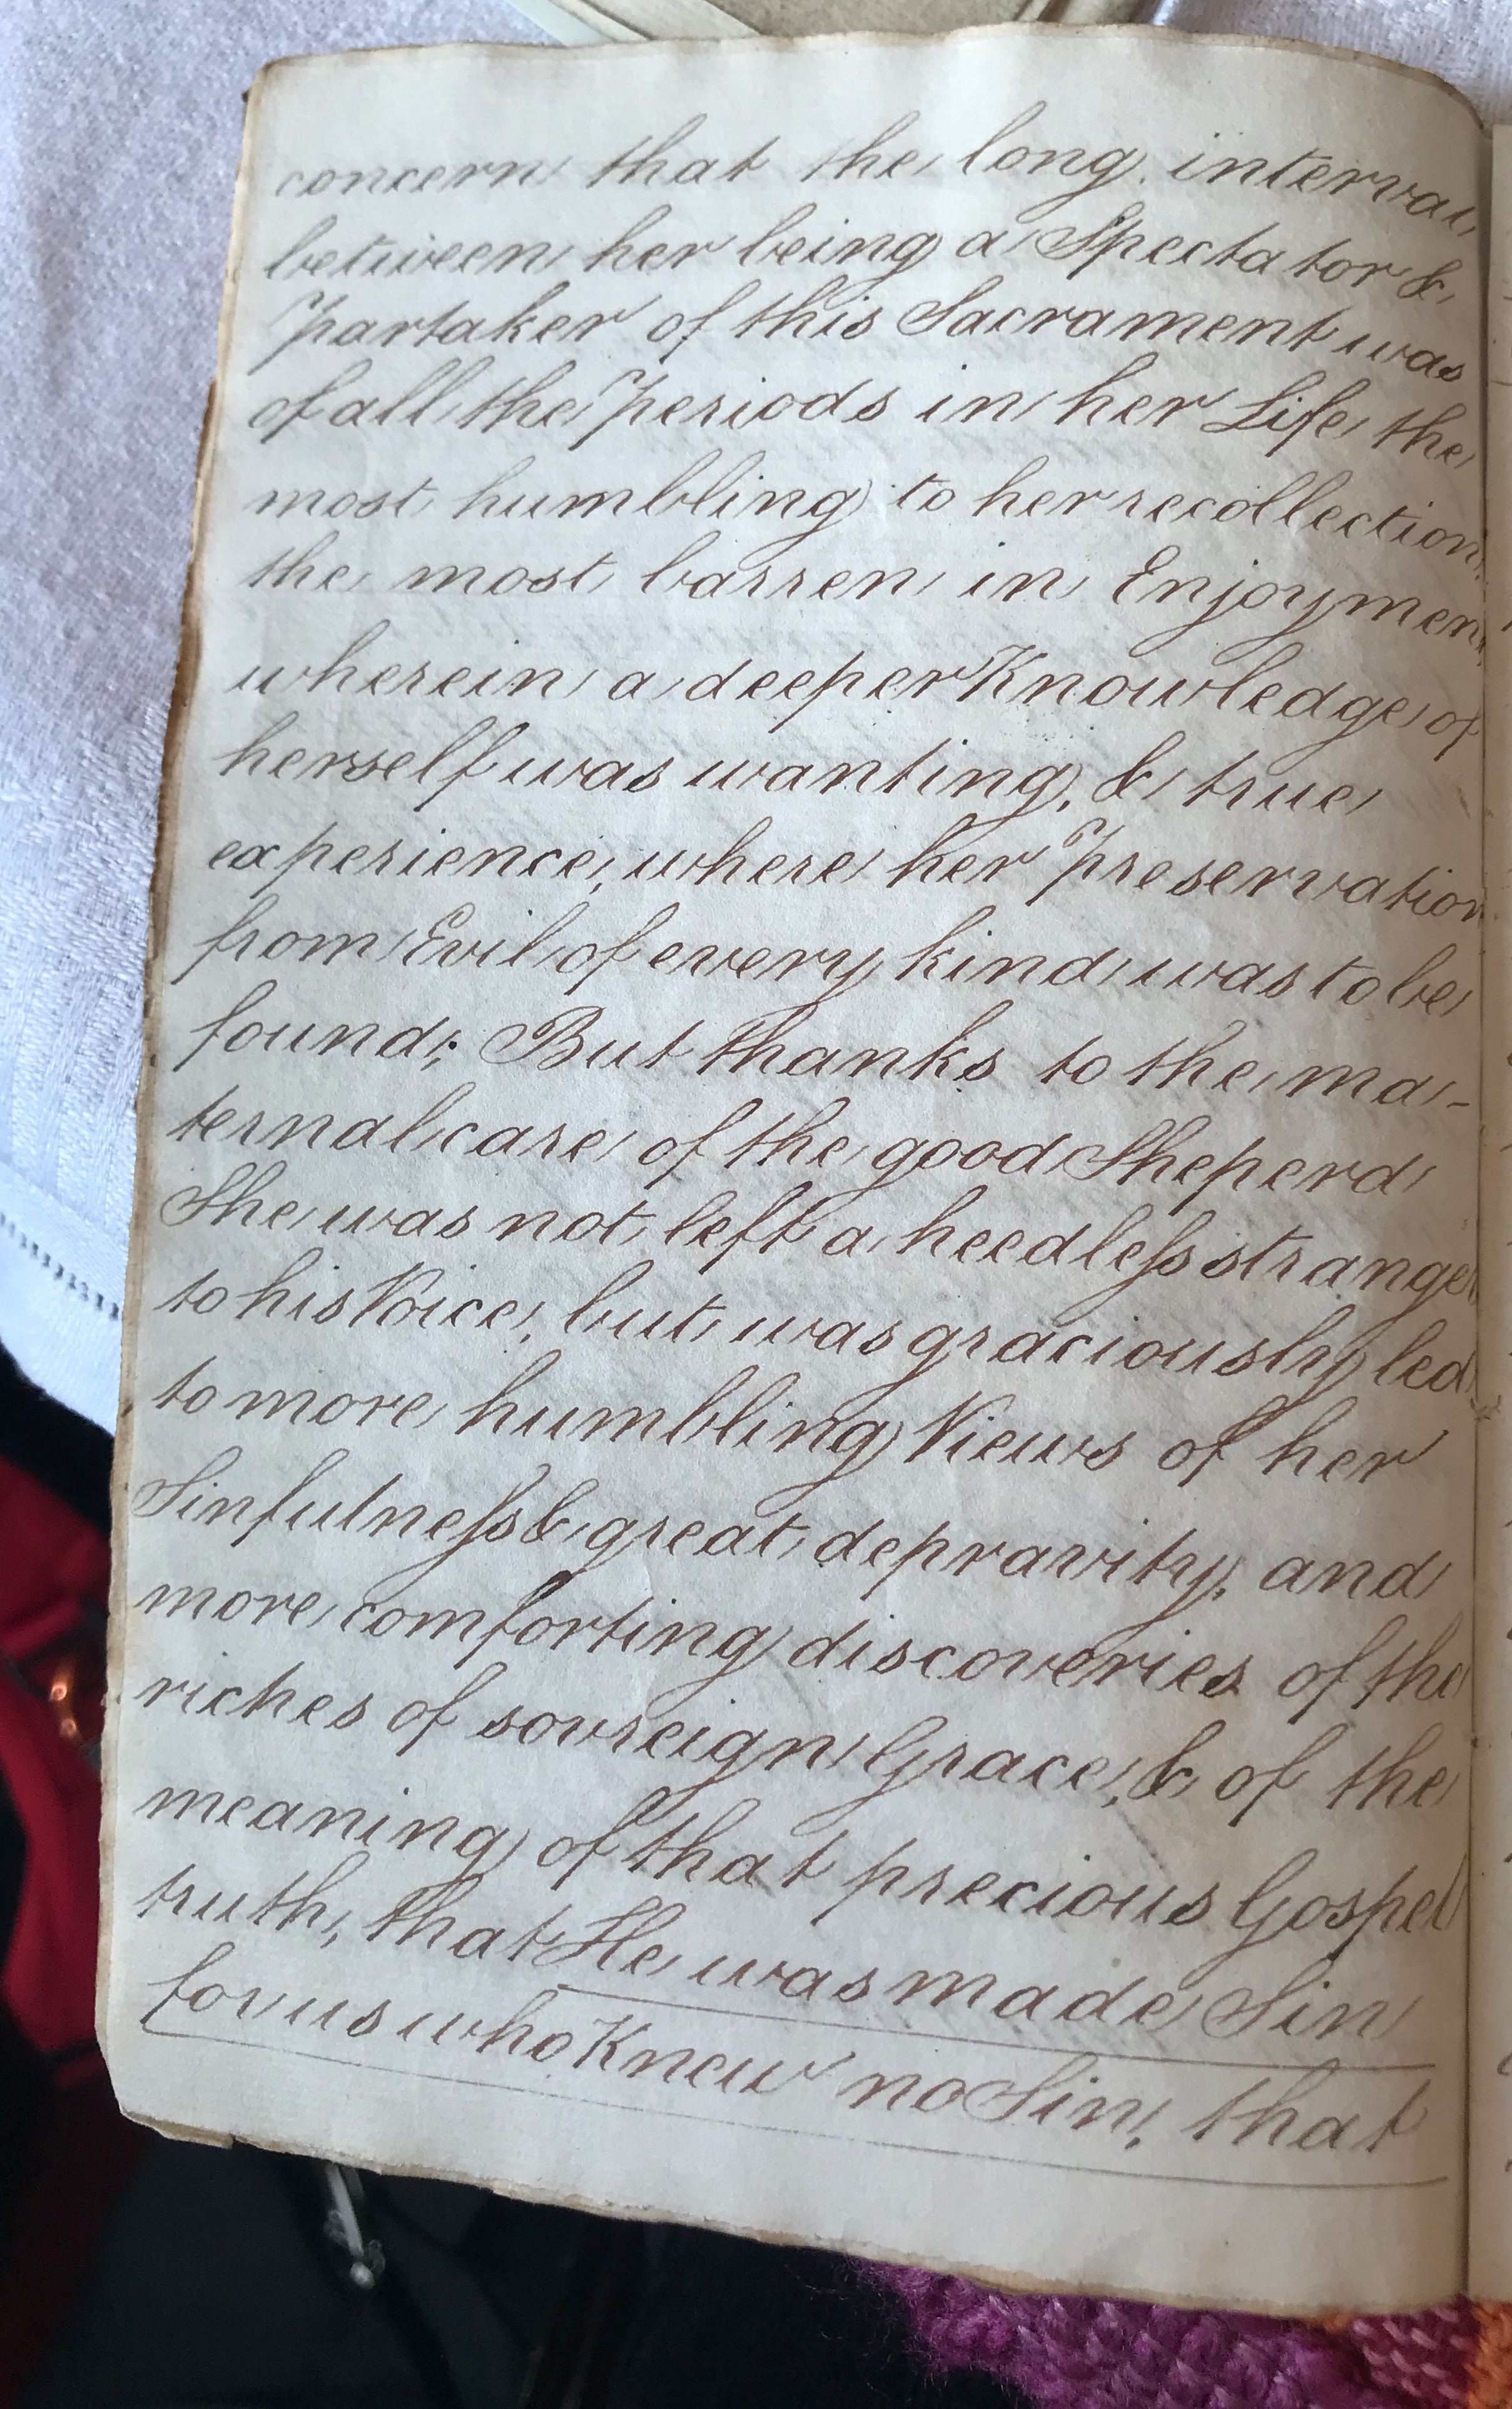 concern that the long interval
between her being a Spectator &
Partaker of this Sacrament was
of all the Periods in her Life, the
most humbling to her recollection,
the most barren in Enjoyment,
wherein a deeper Knowledge of
herself was wanting, & true
experience, where her Preservation
from Evil of every kind was to be
found; But thanks to the ma-
ternal care of the good Sheperd
She was not left a heedless stranger
to his Voice, but was graciously led
to more humbling Views of her
Sinfulness & great depravity, and
more comforting discoveries of the
riches of sovreign Grace, & of the
meaning of that precious Gospel
truth, that He was made Sin
for us who Knew no Sin, that